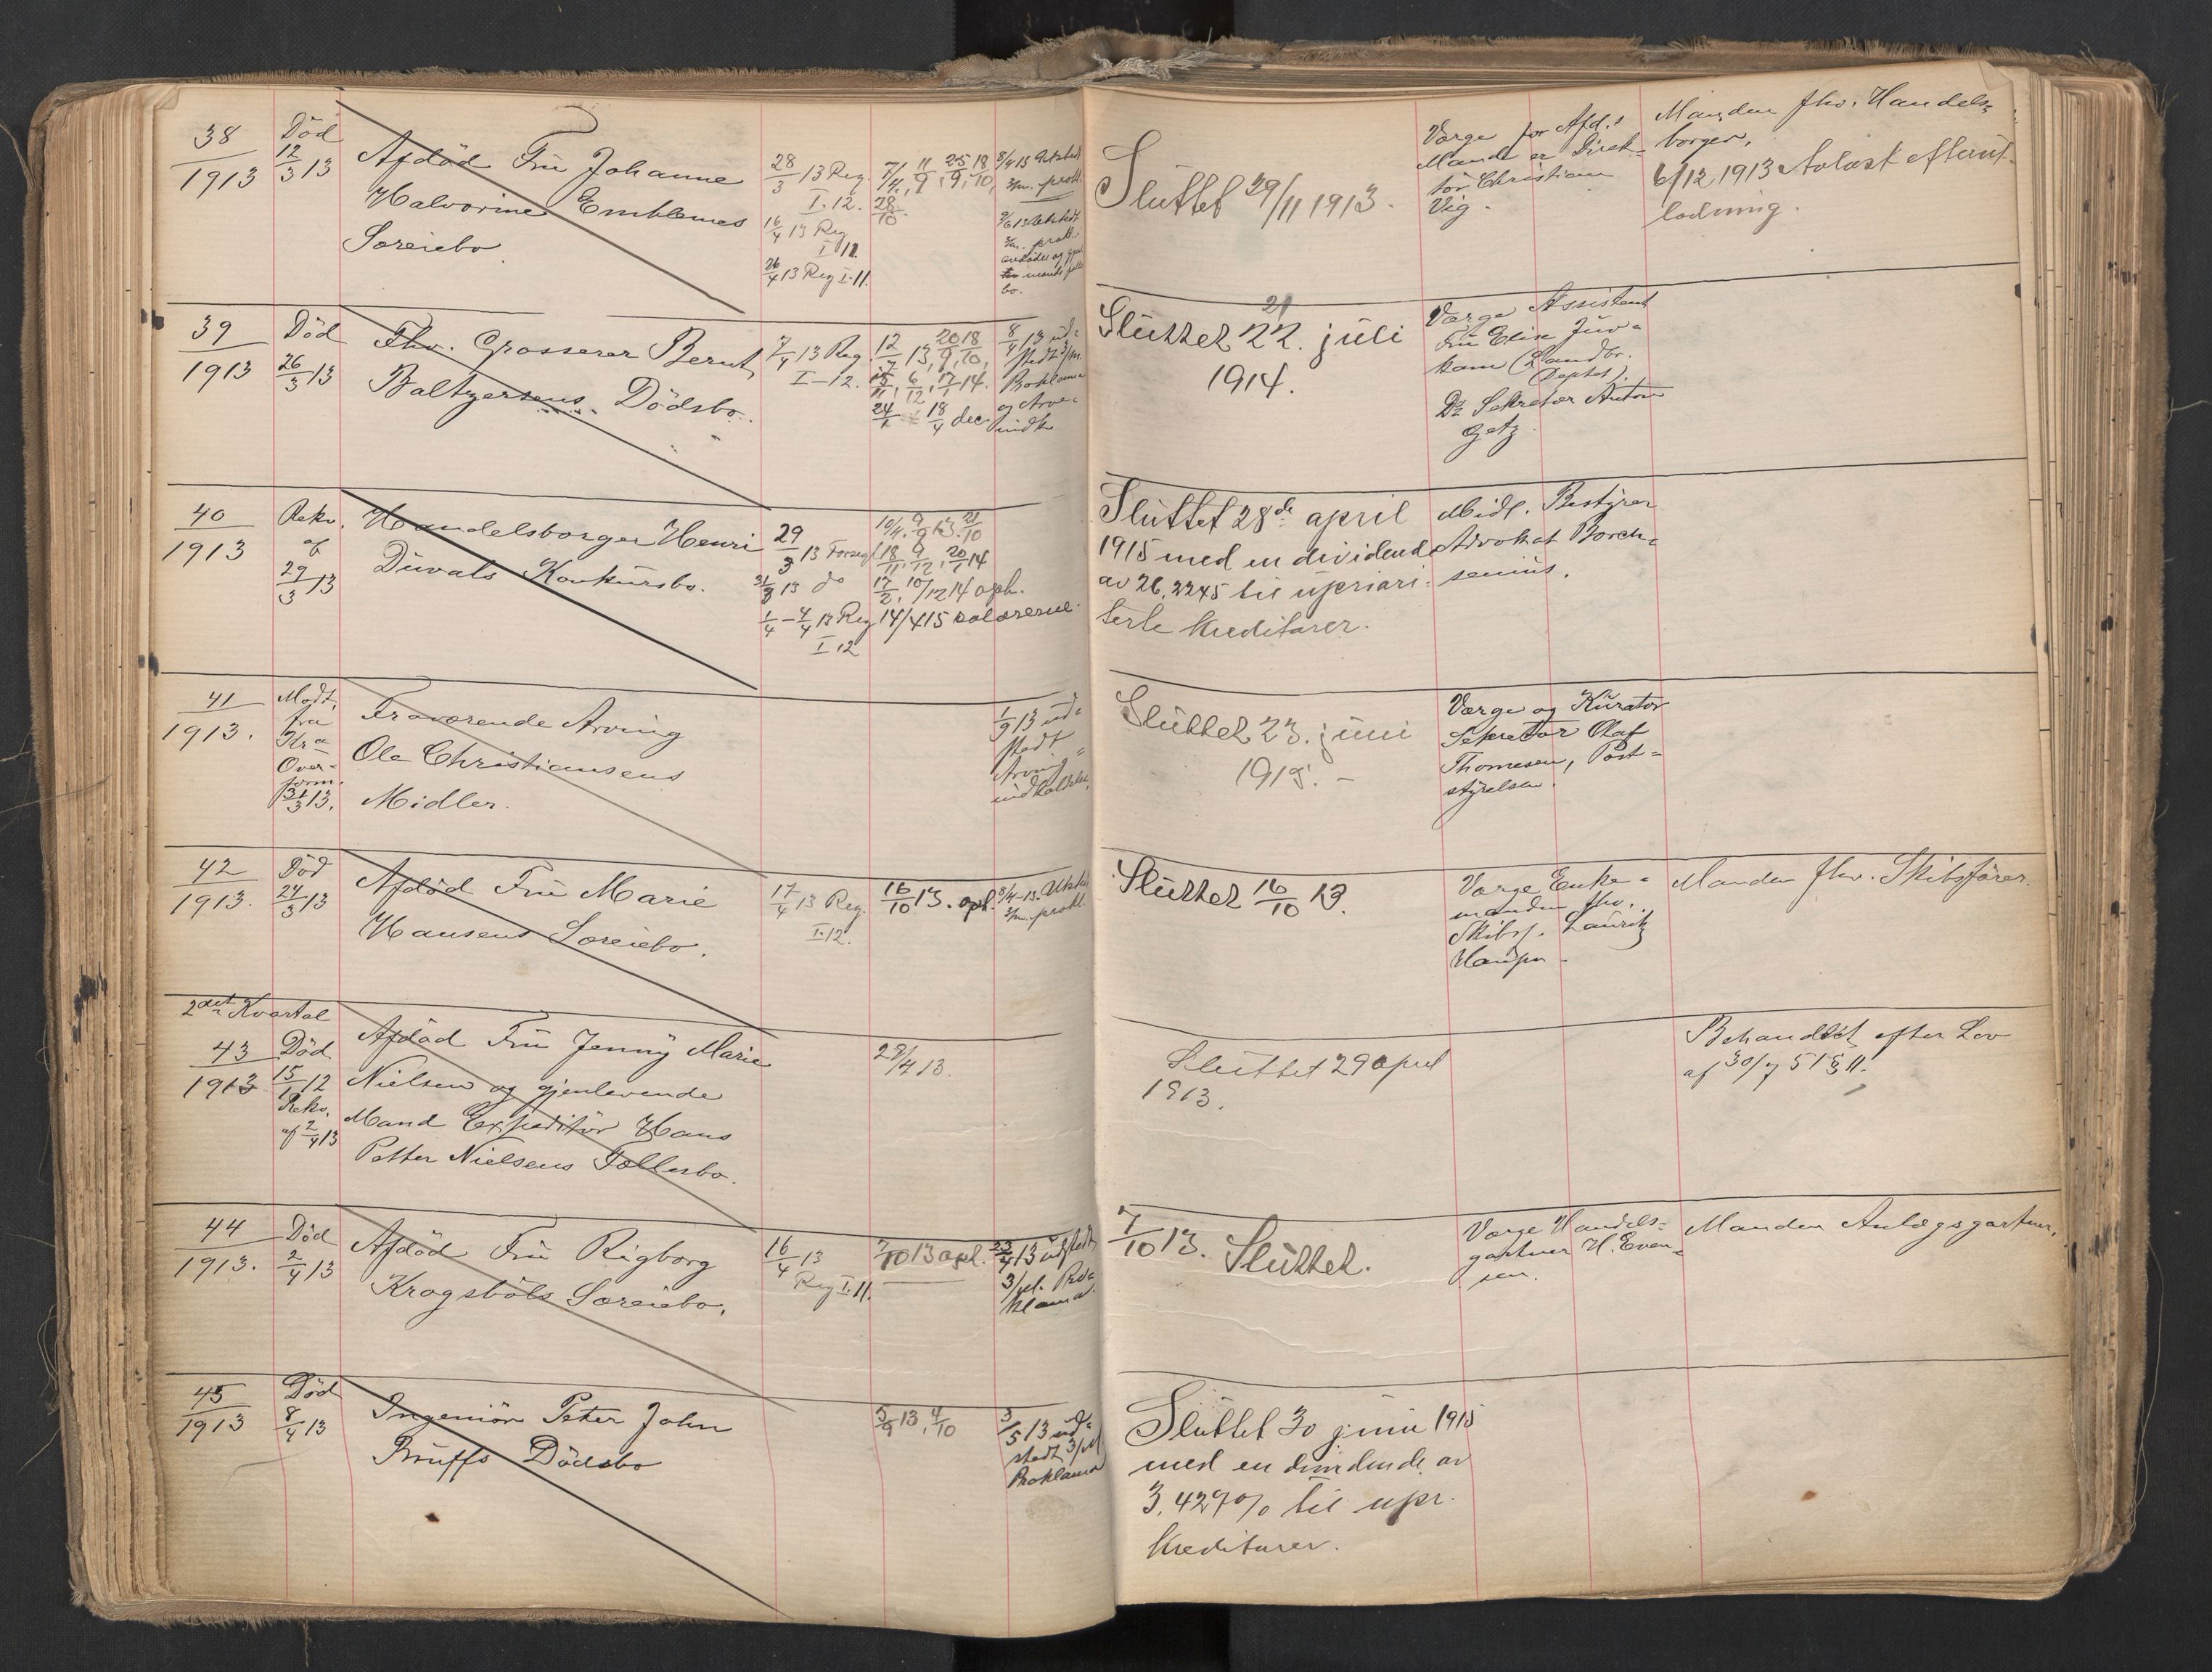 38
1913
Död
12/3 13
Afdöd Frü Johanne
Halvorine Emblemes
Særeiebo.
28/3 13 Reg.
I. 12.
16/4 13 Reg
I 12.
26/4 13 Reg I. 11.
28/10.
3/m. prokl.
bo.
Slüttet 29/11 1913.
Værge for Afd.s
Mand er Direk-
tör Christian
Vig.
Manden fhv. Handels-
borger.
6/12 1913 Avlæst efterut-
lodning.
39
1913
Död
26/3 13
Fhv. Grosserer Bernt
Baltzersens Dödsbo.
7/4 13 Reg.
I-12.
12/7 13, 20/9, 18/10,
15/11, 6/12, 17/1 14.
24/1 18/4 dec.
8/4 13 ud-
stedt 3/m.
Proklama
og Arve-
indk
21
Slüttet 22. jüli
1914.
Værge Assistent
Frü Elise Jüv-
kam (Landbr.
Deptet).
Do Sekretær Anton
Getz
40
1913
Rekv.
af
29/3 13
Handelsborger Henri
Düvals Konkürsbo.
29/3 13 Forsegl
31/3 13 do
1/4 - 4/4 13 Reg
I 12
10/4. 9/9 13. 21/10
18/11, 9/12, 20/1 14
17/2, 10/12 14 oph.
14/4 15 salærerne.
Slüttet 28de april
1915 med en dividende
av 26,2245 til upriori-
terte kreditorer.
Midl. Bestÿrer
Advokat Borch-
senius.
41
1913.
Modt.
fra
Kra
Over-
form.
31/3 13.
Fraværende Arving
Ole Christiansens
Midler.
1/9 13 ud-
stedt
Arving-
indkaldelse.
Slüttet 23. jüni
1915. -
Værge og Kürator
Sekretær Olaf
Thomesen, Post-
stÿrelsen.
42
1913.
Död
24/3 13
Afdöd Frü Marie
Hansens Særeiebo.
17/4 13 Reg.
I. 12.
16/10 13. opl.
8/4 13. Utstedt
3/m. prokl.
Slüttet 16/10 13.
Værge Enke-
manden fhv.
Skibsf. Laüritz
Hansen
Manden fhv. Skibsförer.
2det Kvartal
43
1913
Död
15/1 12
Rekv.
af 2/4 13
Afdöd Frü Jennÿ Marie
Nielsen og gjenlevende
Mand Expeditör Hans
Petter Nielsens Fællesbo.
29/4 13.
Slüttet 29 april
1913.
Behandlet efter Lov
af 30/7 51 § 11.
44
1913.
Död
2/4 13
Afdöd Frü Rigborg
Krogsböls Særeiebo.
16/4 13
Reg I. 11.
7/10 13 opl.
23/4 13 üdstedt
3/M. Pro-
klama.
7/10 13. Slüttet.
Værge Handels-
gartner H. Even-
sen.
Manden Anlægsgartner.
45
1913
Död
8/4 13
Ingeniör Peter John
Brüffs Dödsbo
5/9 13, 4/10
3/5 13 ud-
stedt 3/M
Proklama
Slüttet 30 jüni 1915
med en dividende av
3,429% til upr.
kreditorer.